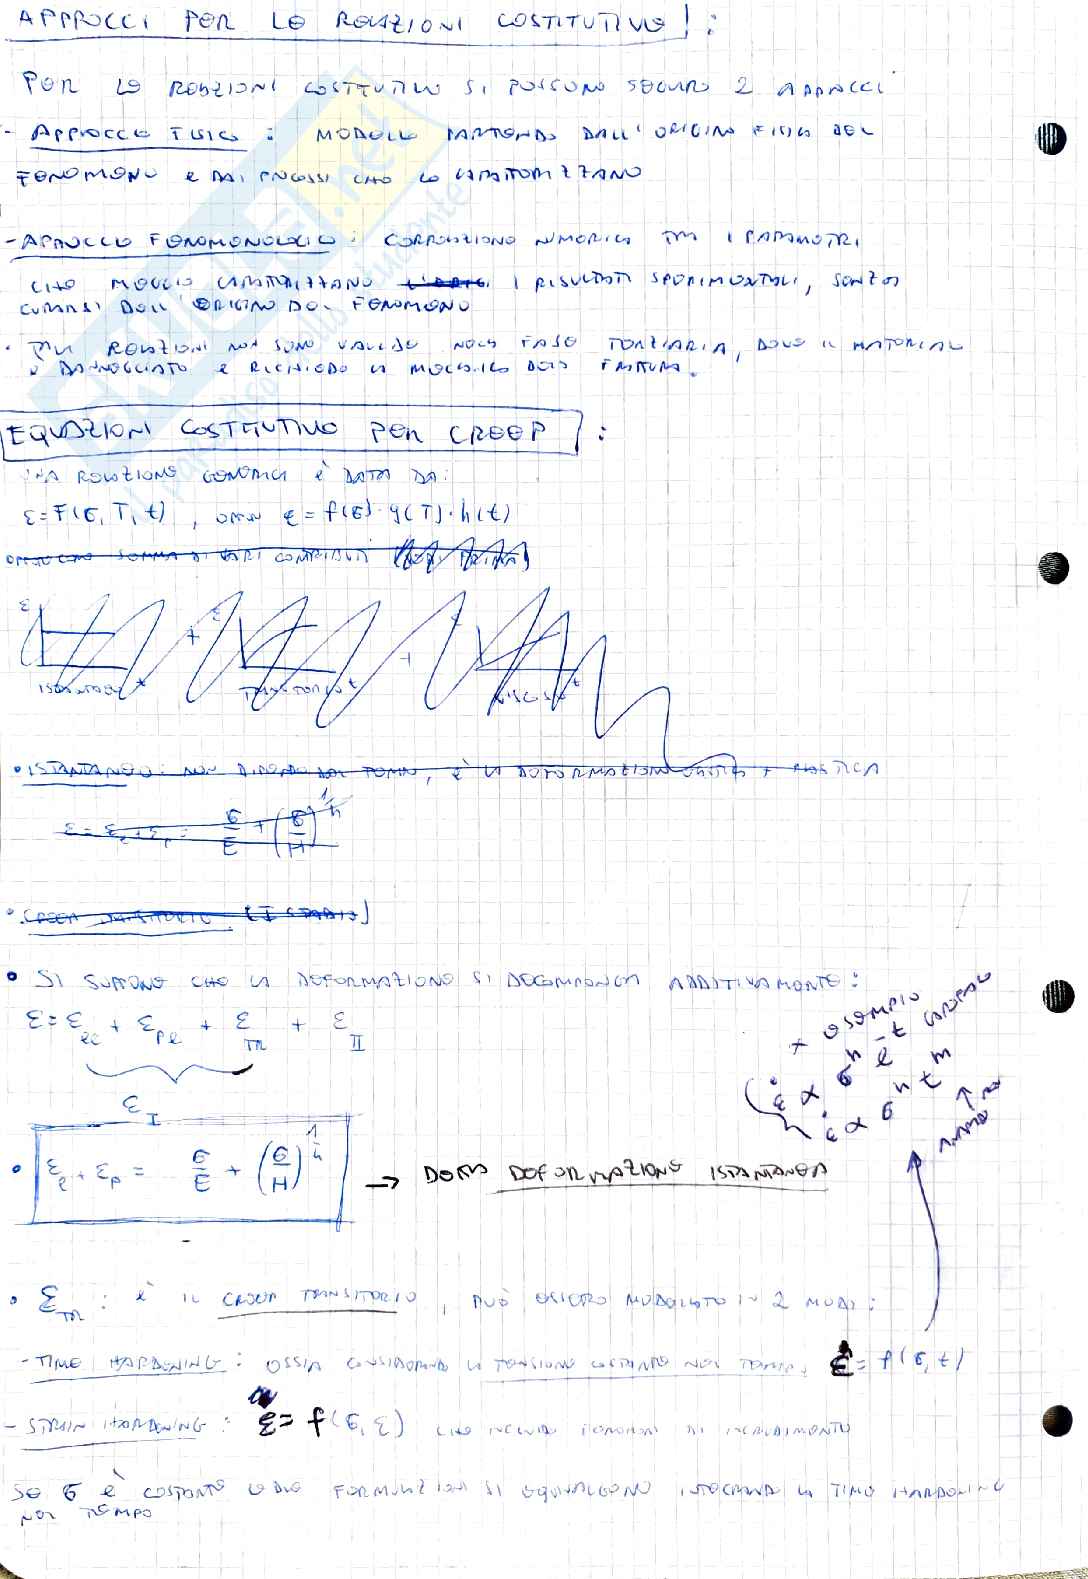 APPROCCI PER LE RELAZIONI COSTITUTIVE :
PER LE RELAZIONI COSTITUTIVE SI POSSONO SEGUIRE 2 APPROCCI
- APPROCCIO FISICO : MODELLO PARTENDO DALL'ORIGINE FISICA DEL
FENOMENO E DAI PROCESSI CHE LO CARATTERIZZANO
- APPROCCIO FENOMENOLOGICO : CORRELAZIONE NUMERICA TRA I PARAMETRI
CHE MEGLIO CARATTERIZZANO I RISULTATI SPERIMENTALI, SENZA
CURARSI DELL'ORIGINE DEL FENOMENO
• RELAZIONI NON SONO VALIDE NELLA FASE TERZIARIA, DOVE IL MATERIALE
È DANNEGGIATO E RICHIEDE LA MECCANICA DELLA FRATTURA.
EQUAZIONI COSTITUTIVE PER CREEP :
UNA RELAZIONE GENERICA È DATA DA:
ε = F(σ, T, t) , OPPURE ε = f(σ)·g(T)·h(t)
OPPURE COME SOMMA DI VARI CONTRIBUTI
ε + ε + ε
ISTANTANEO t TRANSITORIO t VISCOSO t
• ISTANTANEO: NON DIPENDE DAL TEMPO, È LA DEFORMAZIONE ELASTICA + PLASTICA
ε = εe + εp = σ/E + (σ/H)^1/n
• CREEP TRANSITORIO (I STADIO)
• SI SUPPONE CHE LA DEFORMAZIONE SI DECOMPONGA ADDITIVAMENTE :
ε = ε el + ε pl + ε TR + ε II
ε I
+ ESEMPIO
ε̇ ∝ σ^n e^-t
ε̇ ∝ σ^n t^m
• εe + εp = σ/E + (σ/H)^1/n → DETTA DEFORMAZIONE ISTANTANEA
• ε TR : È IL CREEP TRANSITORIO , PUÒ ESSERE MODELLATO IN 2 MODI :
- TIME HARDENING : OSSIA CONSIDERANDO LA TENSIONE COSTANTE NEL TEMPO, ε̇ = f(σ, t)
- STRAIN HARDENING : ε̇ = f(σ, ε) CHE INCLUDE FENOMENI DI INCRUDIMENTO
SE σ È COSTANTE LE DUE FORMULAZIONI SI EQUIVALGONO INTEGRANDO LA TIME HARDENING
NEL TEMPO